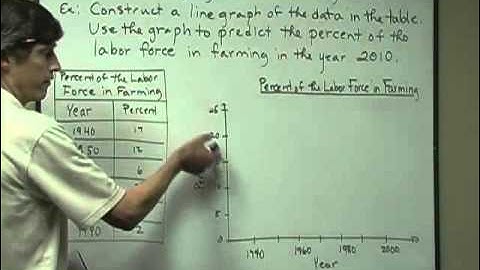 Ex: Construct a line graph of the data in the table.
Use the graph to predict the percent of the
labor force in farming in the year 2010.
Percent of the Labor
Force in Farming
Year Percent
1940 17
1950 12
6
1990 2
Percent of the Labor Force in Farming
25
20
5
0
1940 1960 1980 2000
Year